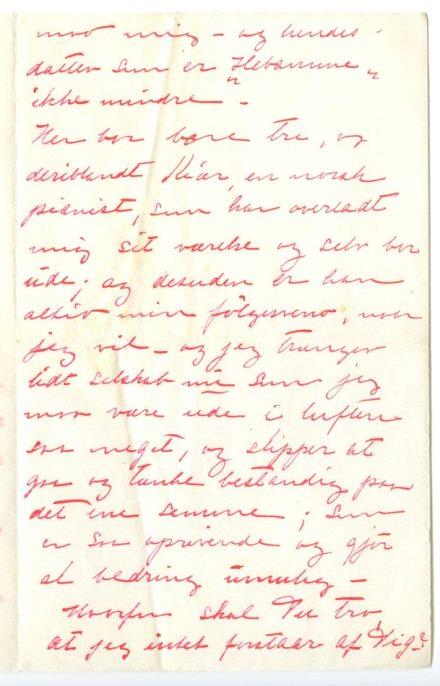 mod mig – og hendes
datter som er "Hebamme"
ikke mindre –
Her bor bare tre, og
deriblandt Kiær, en norsk
pianist, som har overladt
mig sit værelse og selv bor
ude; og desuden er han
altid min følgesvend, naar
jeg vil – og jeg trænger
lidt selskab nu som jeg
maa være ude i luften
saa meget, og slipper at
gaa og tænke bestandig paa
det ene samme; som
er saa oprivende og gjør
al bedring umulig –
Hvorfor skal Du tro,
at jeg intet forstaar af Dig?